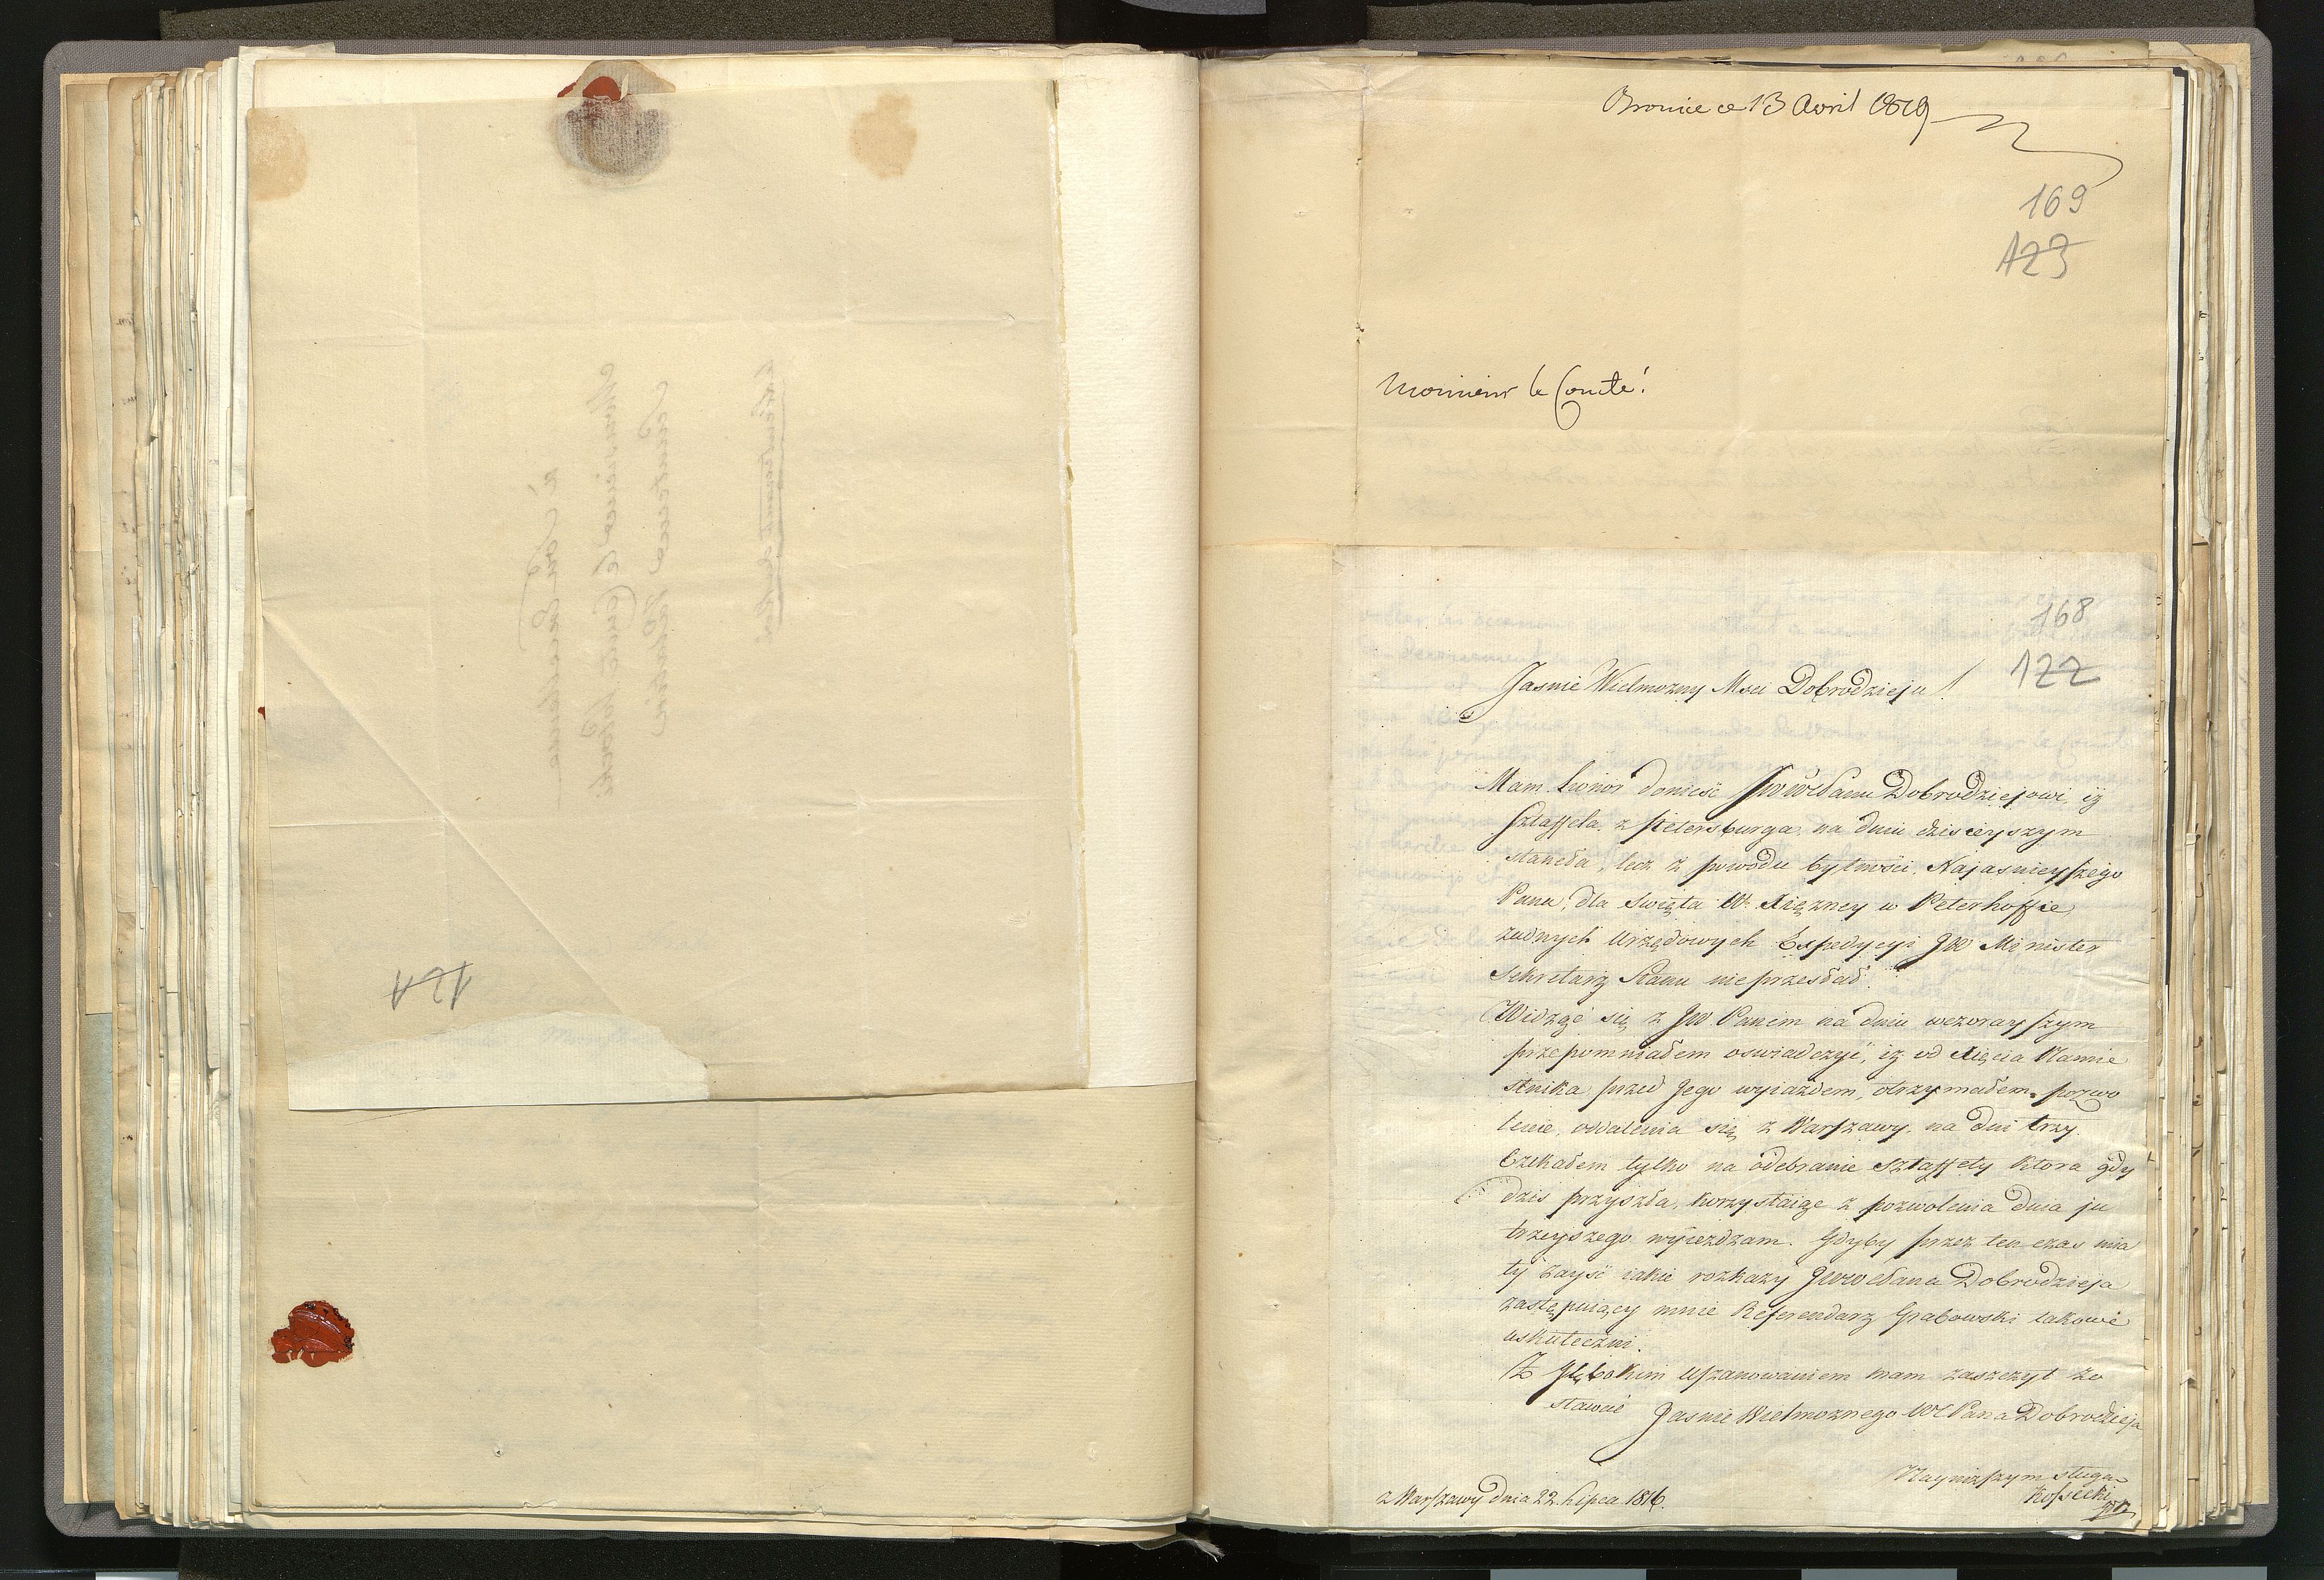 121
ce 13 Avril 1819
169
123
Monsieur le Comte!
168
122
Jasnie Wielmozny Msci Dobrodzieju!
Mam honor donieść JWWPanu Dobrodziejowi, iz
sztaffeta z Petersburga na dniu dzisieyszym
staneła, lecz z powodu bytności Najasnieyszego
Pana, dla Swięta W. Xięzney w Peterhoffie,
zadnych Urzędowych Expedycyi JW Minister
Sekretarz Stanu nie przesłał.
Widząc się z JW Panem na dniu wczorayszym
przepomniałem oswiadczyć, iz od Xięcia Namie
stnika przed Jego wyiazdem, otrzymałem pozwo
lenie, oddalenia się z Warszawy na dni trzy.
Czekałem tylko na odebranie sztaffety ktora gdy
dzis przyszła, korzystaiąc z pozwolenia dnia ju
trzeyszego wyiezdzam. Gdyby przez ten czas mia
ły zayść iakie rozkazy JWW Pana Dobrodzieja
zastępuiący mnie Referendarz Grabowski takowe
uskuteczni.
Z głębokim uszanowaniem mam zaszczyt zo
stawać
Jasnie Wielmoznego WPana Dobrodzieja
Nayniszszym sługą
Kossecki
z Warszawy dnia 22. Lipca 1816.